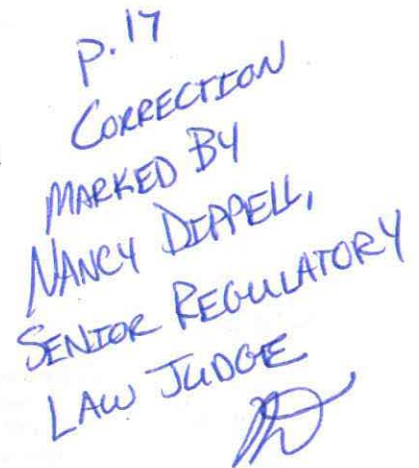 p.17
CORRECTION
MARKED BY
NANCY DIPPELL,
SENIOR REGULATORY
LAW JUDGE
ND